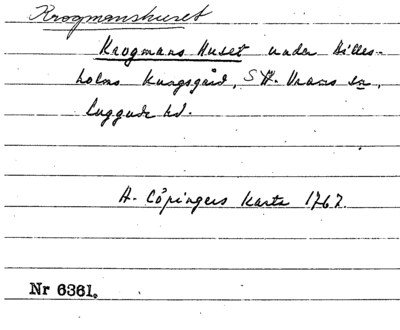 Krogmanshuset
Krogmans Huset under Billes-
holms Kungsgård, S. Vrams sn,
Luggude hd.
A. Cöpingers Karta 1767.
Nr 6361.